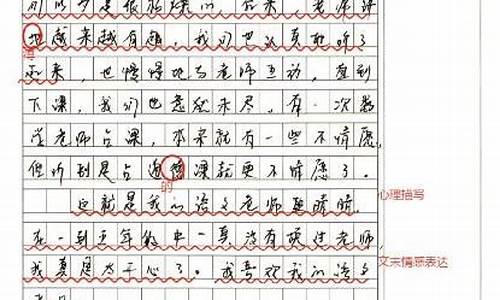 可以少是很枯燥的，后来，老师讲
地越来越有趣，我们也认真的听了
得
起来，也慢慢地与老师互动，直到
下课，我们也意犹未尽，有一次数
学老师占课，本来就有一些不情愿，
但听到是占语课就更不情愿了。
的
心理描写
这就是我们语文老师
在一到五年级中一直没有换过老师，
文末情意表达
我真是太开心了。我喜欢我们语文